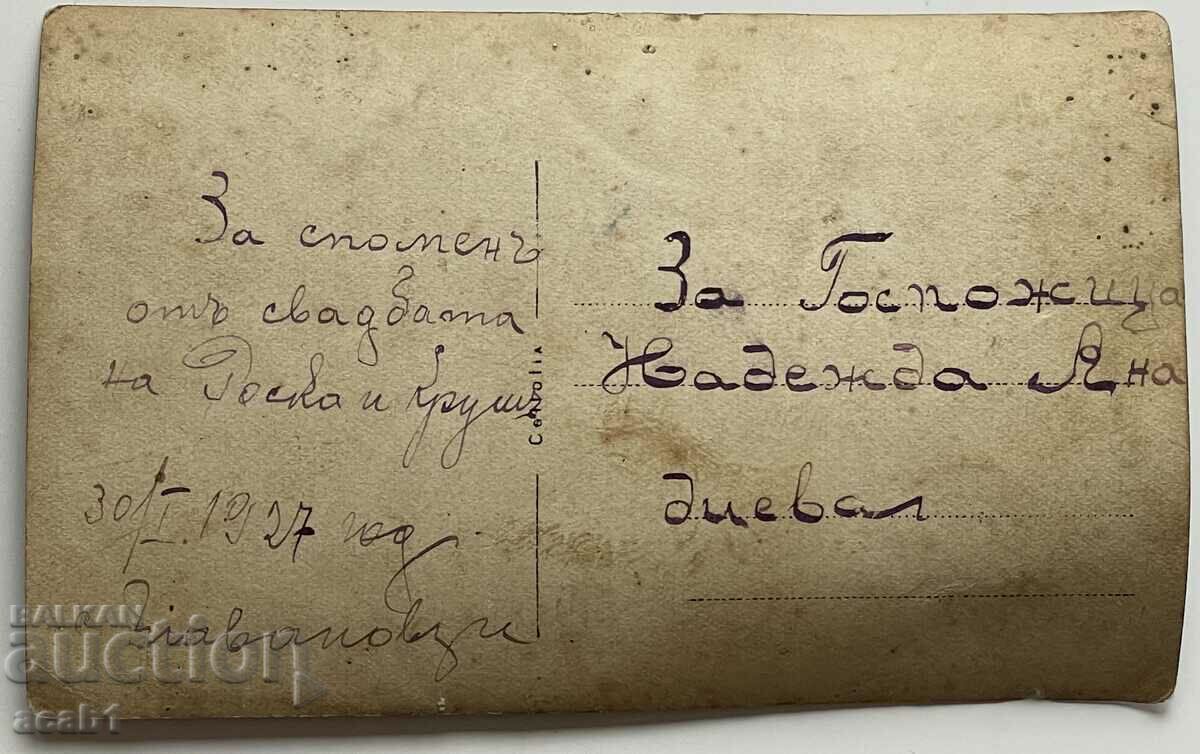 За споменъ
отъ свадбата
на Роска и Крушъ
30/I. 1927 год.
с. Главановци
Corvolia
За Госпожица
Надежда Яна
диева
BALKAN
auction
acab1